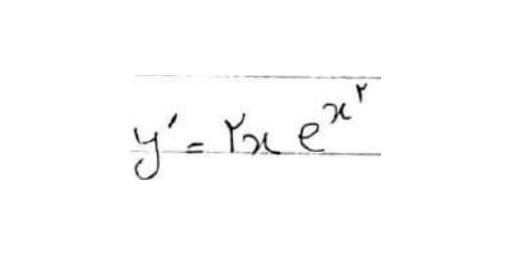 y′ = ۲x e^x^۲